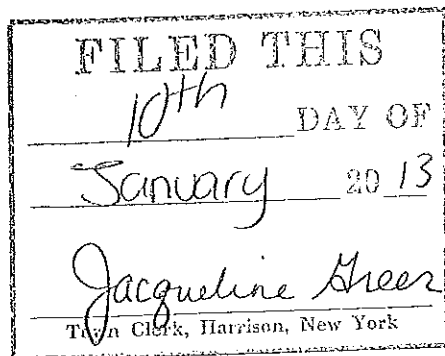 FILED THIS
10th DAY OF
January 20 13
Jacqueline Greer
Town Clerk, Harrison, New York